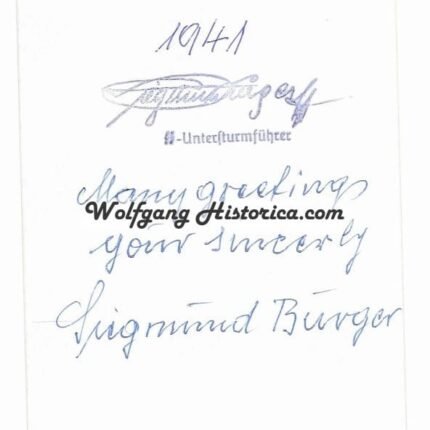 1941
Siegmund Burger
ᛋᛋ-Untersturmführer
Many greetings
Wolfgang Historica.com
your sincerly
Siegmund Burger